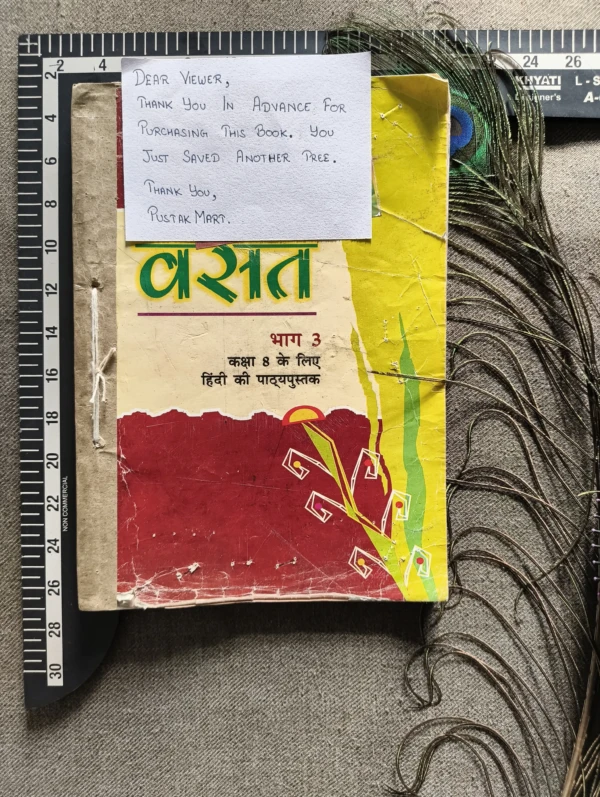 DEAR VIEWER,
THANK YOU IN ADVANCE FOR
PURCHASING THIS BOOK. YOU
JUST SAVED ANOTHER TREE.
THANK YOU,
PUSTAK MART.
वसंत
भाग 3
कक्षा 8 के लिए
हिंदी की पाठ्यपुस्तक
2
4
24
26
KHYATI L-S
A-
2
4
6
8
10
12
14
16
18
20
22
24
26
28
30
NON COMMERCIAL